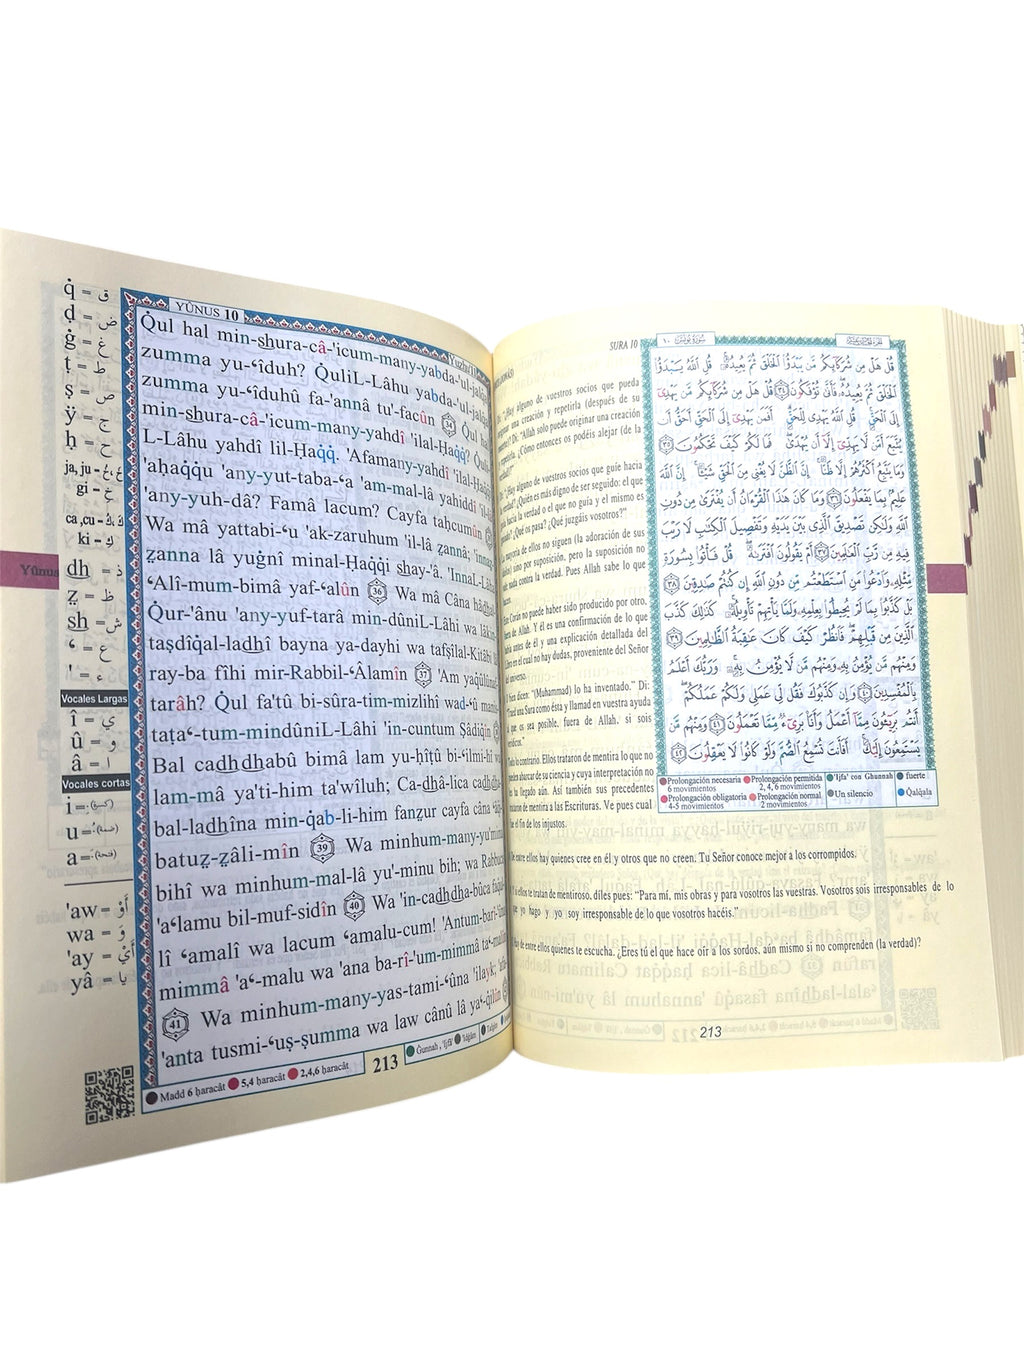 q̇ = ق
ḍ = ض
ġ = غ
ṭ = ط
ṣ = ص
ÿ = ج
ḥ = ح
ja, ju = خَ، خُ
gi = خِ
ca ,cu = كَ، كُ
ki = كِ
dh = ذ
ẓ = ظ
sh = ش
ʿ = ع
' = ء
Vocales Largas
î = ي
û = و
â = ا
Vocales cortas
i =
u =
a =
'aw = أَوْ
wa = وَ
'ay = أَيْ
yâ = يا
Yûnus
YÛNUS 10
Q̇ul hal min-shura-câ-'icum-many-yabda-'ul-jalq̇a
zumma yu-ʿîduh? Q̇uliL-Lâhu yabda-'ul-jalq̇a
zumma yu-ʿîduhû fa-'annâ tu'-facûn 34 Q̇ul hal
min-shura-câ-'icum-many-yahdî 'ilal-Ḥaq̇q̇? Q̇uli
L-Lâhu yahdî lil-Ḥaq̇q̇. 'Afamany-yahdî 'ilal-Ḥaq̇q̇i
'aḥaq̇q̇u 'any-yut-tabaʿa 'am-mal-lâ yahiddî 'il-lâ
'any-yuh-dâ? Famâ lacum? Cayfa taḥcumûn
Wa mâ yattabi-ʿu 'ak-zaruhum 'il-lâ ẓannâ; 'innaẓ-
ẓanna lâ yuġnî minal-Ḥaq̇q̇i shay-'â. 'InnaL-Lâha
ʿAlî-mum-bimâ yaf-ʿalûn 36 Wa mâ Câna hâdhal-
Q̇ur-'ânu 'any-yuf-tarâ min-dûniL-Lâhi wa lâkin-
taṣdîq̇al-ladhî bayna ya-dayhi wa tafṣîlal-Kitâbi lâ
ray-ba fîhi mir-Rabbil-ʿÂlamîn 37 'Am yaq̇ûlûnaf-
tarâh? Q̇ul fa'tû bi-sûra-tim-mizlihî wad-ʿû manis-
taṭaʿ-tum-mindûniL-Lâhi 'in-cuntum Ṣâdiq̇în
Bal cadhdhabû bimâ lam yu-ḥîṭû bi-ʿilmi-hî wa
lam-mâ ya'ti-him ta'wîluh; Ca-dhâ-lica cadhdha-
bal-ladhîna min-q̇ab-li-him fanẓur cayfa câna ʿâq̇i-
batuẓ-ẓâli-mîn 39 Wa minhum-many-yu'minu
bihî wa minhum-mal-lâ yu'-minu bih; wa Rabbuca
'aʿlamu bil-muf-sidîn 40 Wa 'in-cadhdha-bûca faq̇ul-
lî ʿamalî wa lacum ʿamalu-cum! 'Antum-barî-'ûna
mimmâ 'aʿ-malu wa 'ana ba-rî-'um-mimmâ taʿ-malûn
41 Wa minhum-many-yas-tami-ʿûna 'ilayk; 'afa-
'anta tusmi-ʿuṣ-ṣumma wa law cânû lâ yaʿ-q̇ilûn
Madd 6 ḥaracât 5,4 ḥaracât 2,4,6 ḥaracât
213
Ġunnah, 'Ijfâ'
SURA 10
¿Hay alguno de vuestros socios que pueda
originar una creación y repetirla (después de su
Di: "Allah solo puede originar una creación
repetirla. ¿Cómo entonces os podéis alejar (de la
¿Hay alguno de vuestros socios que guíe hacia
la verdad? ¿Quién es más digno de ser seguido: el que
guía hacia la verdad o el que no guía y el mismo es
guiado? ¿Qué os pasa? ¿Qué juzgáis vosotros?"
mayoría de ellos no siguen (la adoración de sus
uno por suposición, pero la suposición no
nada contra la verdad. Pues Allah sabe lo que
hacen.
Este Corán no puede haber sido producido por otro,
fuera de Allah. Y él es una confirmación de lo que
había antes de él y una explicación detallada del
Libro en el cual no hay dudas, proveniente del Señor
del universo.
Y bien dicen: "(Muhammad) lo ha inventado." Di:
"Traed una Sura como ésta y llamad en vuestra ayuda
a que os sea posible, fuera de Allah, si sois
verídicos."
Todo lo contrario. Ellos trataron de mentira lo que no
pueden abarcar de su ciencia y cuya interpretación no
les ha llegado aún. Así también sus precedentes
trataron de mentira a las Escrituras. Ve pues cual
fue el fin de los injustos.
De entre ellos hay quienes cree en él y otros que no creen. Tu Señor conoce mejor a los corrompidos.
Y si ellos te tratan de mentiroso, diles pues: "Para mí, mis obras y para vosotros las vuestras. Vosotros sois irresponsables de lo
que yo hago y yo soy irresponsable de lo que vosotros hacéis."
Hay de entre ellos quienes te escucha. ¿Eres tú el que hace oír a los sordos, aún mismo si no comprenden (la verdad)?
سُورَةُ يُونُسَ ١٠
قُلْ هَلْ مِن شُرَكَائِكُم مَّن يَبْدَؤُا الْخَلْقَ ثُمَّ يُعِيدُهُ قُلِ اللَّهُ يَبْدَؤُا
الْخَلْقَ ثُمَّ يُعِيدُهُ فَأَنَّىٰ تُؤْفَكُونَ ٣٤ قُلْ هَلْ مِن شُرَكَائِكُم مَّن يَهْدِي
إِلَى الْحَقِّ قُلِ اللَّهُ يَهْدِي لِلْحَقِّ أَفَمَن يَهْدِي إِلَى الْحَقِّ أَحَقُّ أَن
يُتَّبَعَ أَمَّن لَّا يَهِدِّي إِلَّا أَن يُهْدَىٰ فَمَا لَكُمْ كَيْفَ تَحْكُمُونَ ٣٥
وَمَا يَتَّبِعُ أَكْثَرُهُمْ إِلَّا ظَنًّا إِنَّ الظَّنَّ لَا يُغْنِي مِنَ الْحَقِّ شَيْئًا إِنَّ اللَّهَ
عَلِيمٌ بِمَا يَفْعَلُونَ ٣٦ وَمَا كَانَ هَٰذَا الْقُرْءَانُ أَن يُفْتَرَىٰ مِن دُونِ
اللَّهِ وَلَٰكِن تَصْدِيقَ الَّذِي بَيْنَ يَدَيْهِ وَتَفْصِيلَ الْكِتَٰبِ لَا رَيْبَ
فِيهِ مِن رَّبِّ الْعَٰلَمِينَ ٣٧ أَمْ يَقُولُونَ افْتَرَىٰهُ قُلْ فَأْتُوا بِسُورَةٍ
مِّثْلِهِ وَادْعُوا مَنِ اسْتَطَعْتُم مِّن دُونِ اللَّهِ إِن كُنتُمْ صَٰدِقِينَ ٣٨
بَلْ كَذَّبُوا بِمَا لَمْ يُحِيطُوا بِعِلْمِهِ وَلَمَّا يَأْتِهِمْ تَأْوِيلُهُ كَذَٰلِكَ كَذَّبَ
الَّذِينَ مِن قَبْلِهِمْ فَانظُرْ كَيْفَ كَانَ عَٰقِبَةُ الظَّٰلِمِينَ ٣٩
وَمِنْهُم مَّن يُؤْمِنُ بِهِ وَمِنْهُم مَّن لَّا يُؤْمِنُ بِهِ وَرَبُّكَ أَعْلَمُ
بِالْمُفْسِدِينَ ٤٠ وَإِن كَذَّبُوكَ فَقُل لِّي عَمَلِي وَلَكُمْ عَمَلُكُمْ
أَنتُم بَرِيئُونَ مِمَّا أَعْمَلُ وَأَنَا بَرِيءٌ مِّمَّا تَعْمَلُونَ ٤١ وَمِنْهُم مَّن
يَسْتَمِعُونَ إِلَيْكَ أَفَأَنتَ تُسْمِعُ الصُّمَّ وَلَوْ كَانُوا لَا يَعْقِلُونَ ٤٢
Prolongación necesaria 6 movimientos
Prolongación permitida 2, 4, 6 movimientos
'Ijfa' con Ghunnah
fuerte
Prolongación obligatoria 4-5 movimientos
Prolongación normal 2 movimientos
Un silencio
Qalqala
213